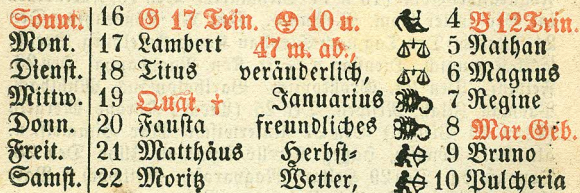 Sonnt. 16 G 17 Trin. 10 u. 4 B 12 Trin.
Mont. 17 Lambert 47 m. ab., 5 Nathan
Dienst. 18 Titus veränderlich, 6 Magnus
Mittw. 19 Quat. † Januarius 7 Regine
Donn. 20 Fausta freundliches 8 Mar. Geb.
Freit. 21 Matthäus Herbst- 9 Bruno
Samst. 22 Moritz Wetter, 10 Pulcheria